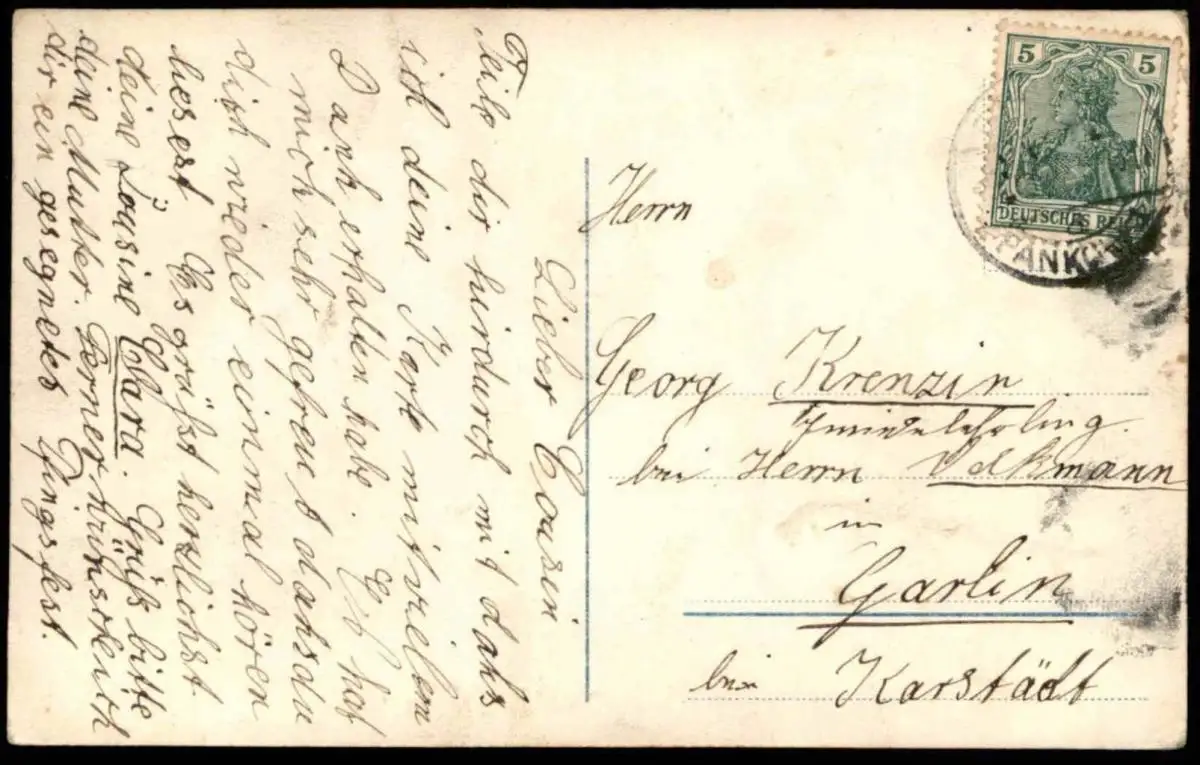 Lieber Cousin
Teile dir hirdurch mit dahs
ich deine Karte mit vielen
Dank erhalten habe. Es hat
mich sehr gefreut dahsdu
dich wieder einmal hören
liesest. Es grüßst herzlichst
deine Cousine Clara. Grüße bitte
deine Mutter. Ferner wünsche ich
dir ein gesegnetes Fingsfest.
5 5
DEUTSCHES REICH
PANKOW
Herrn
Georg Krenzin
bei Herrn Volkmann
in
Garlin
bei Karstädt